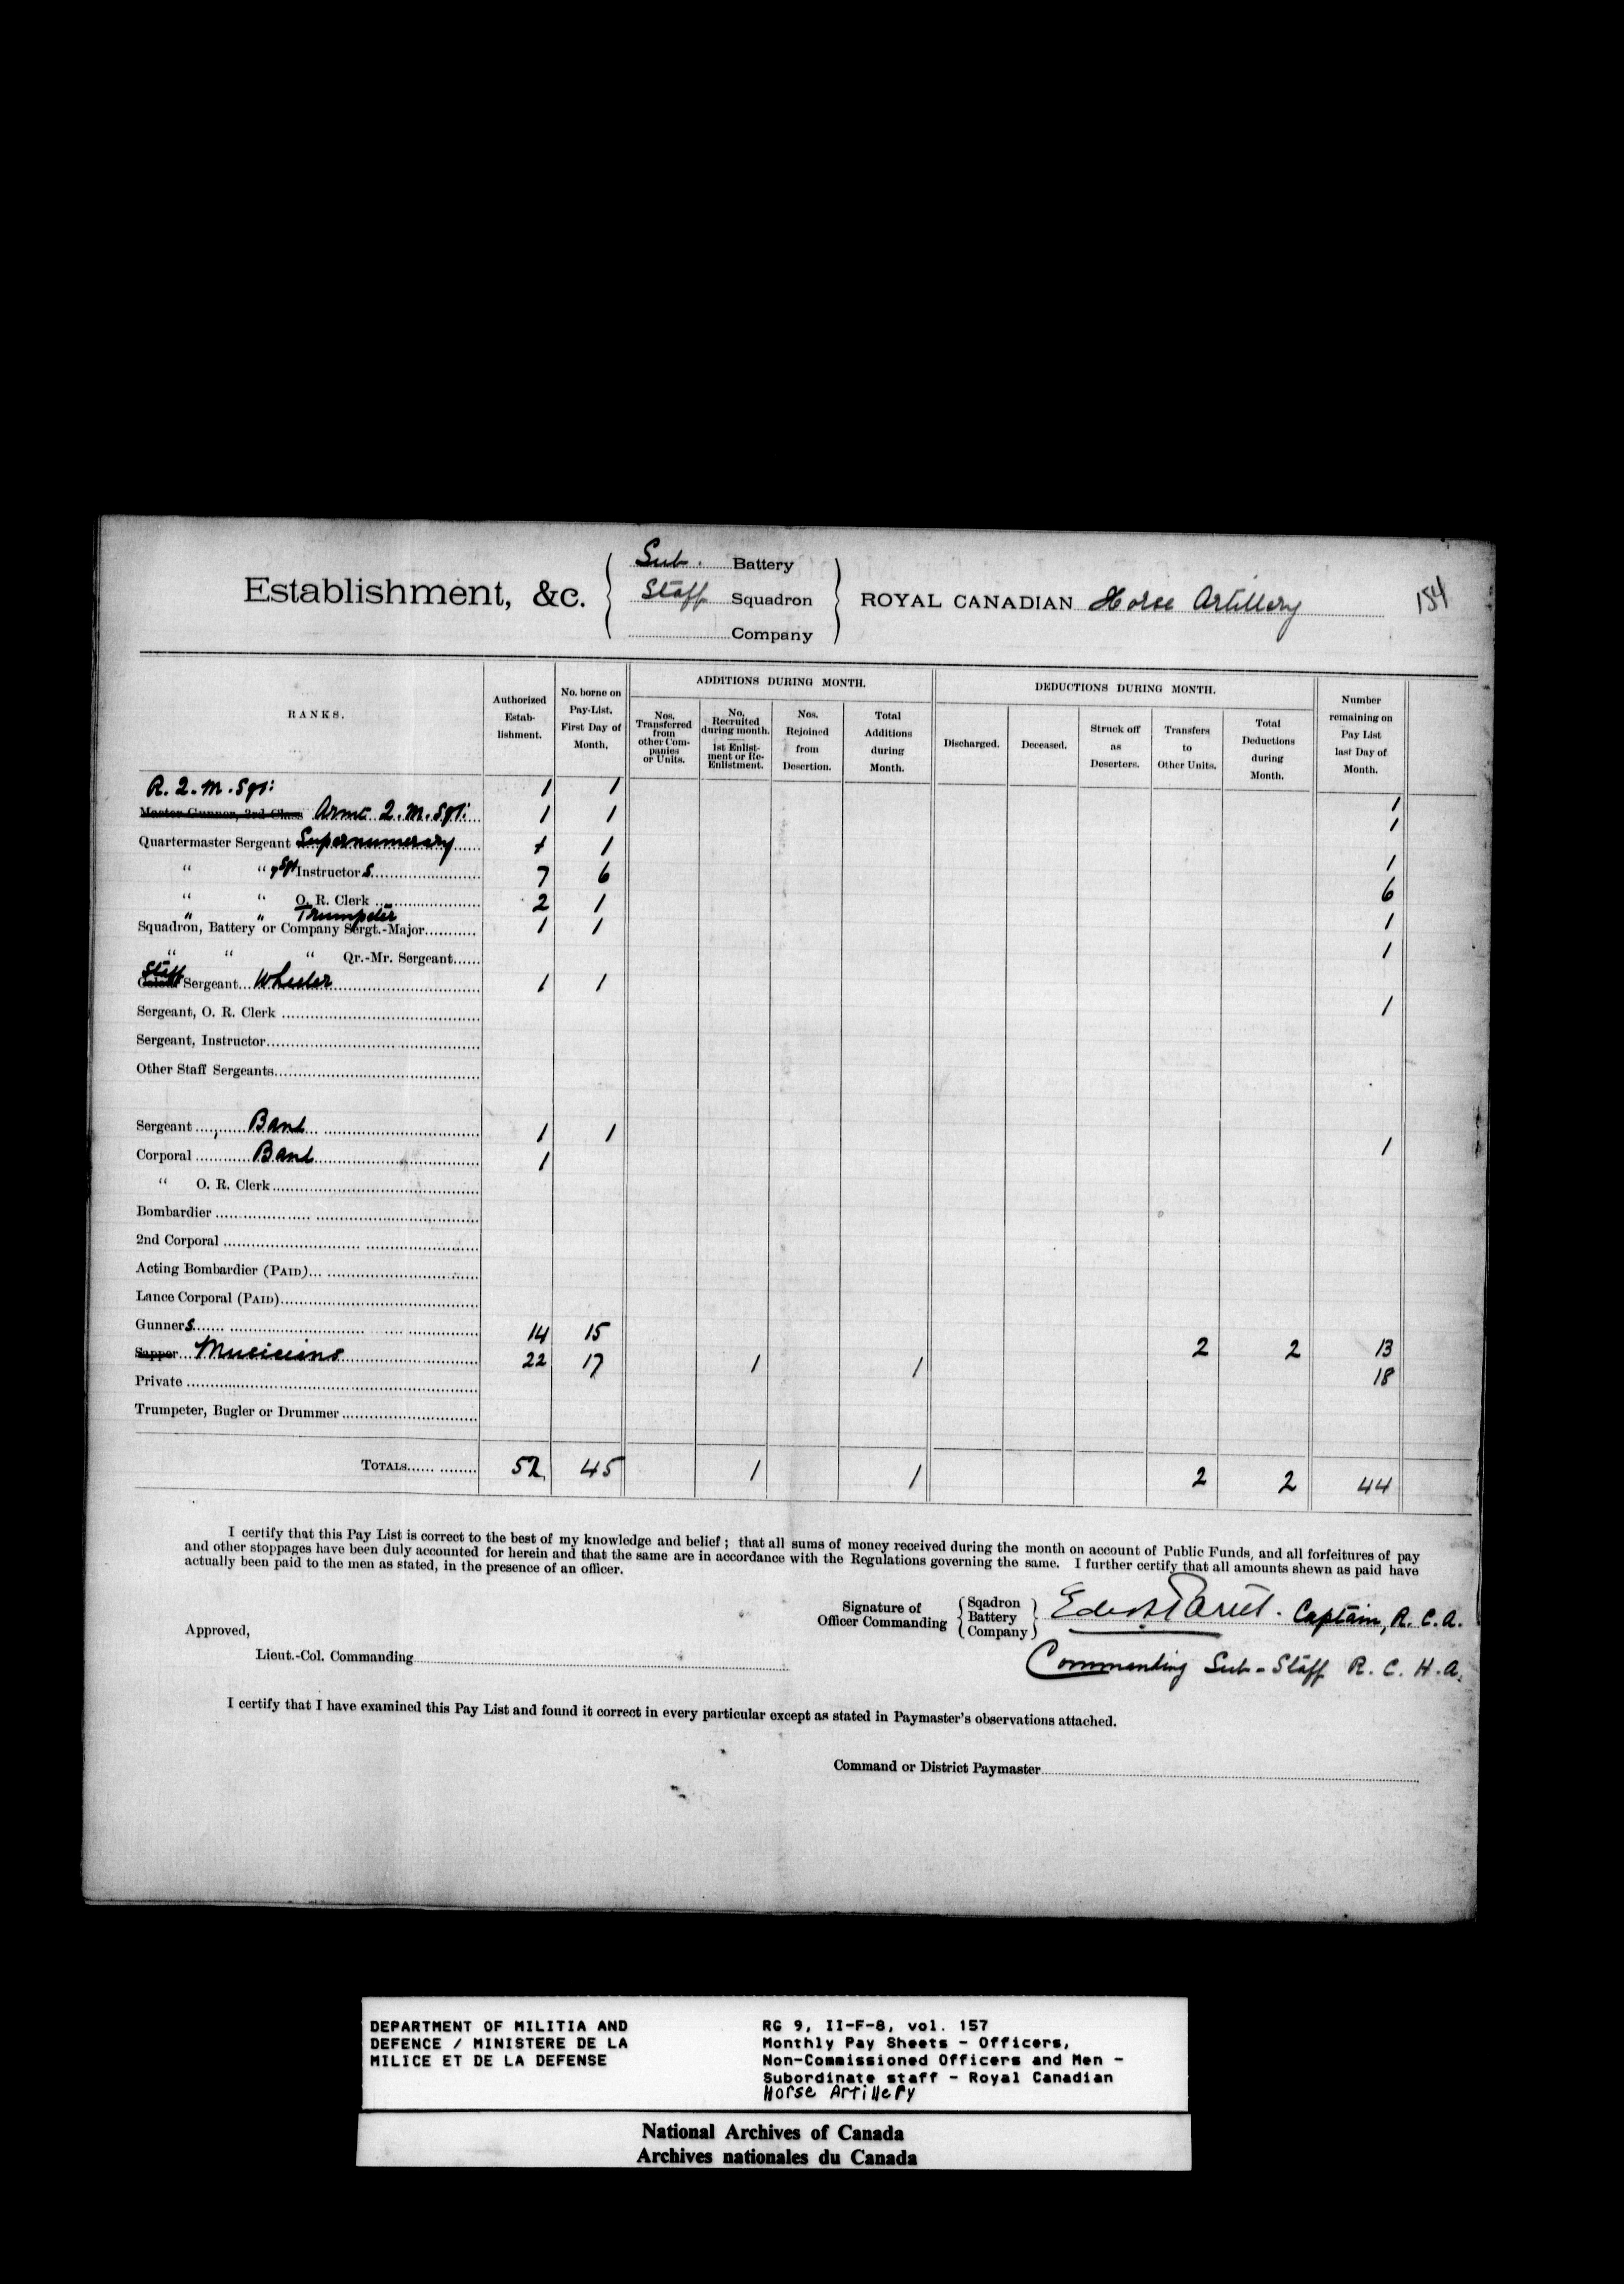 Establishment, &c.
Sub. Battery
Staff Squadron
Company
ROYAL CANADIAN Horse Artillery
154
RANKS.
Authorized Estab-lishment.
No. borne on Pay-List. First Day of Month.
ADDITIONS DURING MONTH.
Nos. Transferred from other Com-panies or Units.
No. Recruited during month. 1st Enlist-ment or Re-Enlistment.
Nos. Rejoined from Desertion.
Total Additions during Month.
DEDUCTIONS DURING MONTH.
Discharged.
Deceased.
Struck off as Deserters.
Transfers to Other Units.
Total Deductions during Month.
Number remaining on Pay List last Day of Month.
R. Q. M. Sgt: 1 1 1
Master Gunner, 3rd Class Armt. Q. M. Sgt: 1 1 1
Quartermaster Sergeant Supernumerary 1 1
" " Sgt Instructors 7 6 6
" " O. R. Clerk 2 1 1
" " Trumpeter
Squadron, Battery or Company Sergt.-Major 1 1 1
" " " Qr.-Mr. Sergeant
Staff Sergeant Wheeler 1 1 1
Sergeant, O. R. Clerk
Sergeant, Instructor
Other Staff Sergeants
Sergeant, Band 1 1 1
Corporal Band 1
" O. R. Clerk
Bombardier
2nd Corporal
Acting Bombardier (PAID)
Lance Corporal (PAID)
Gunners 14 15 2 2 13
Sapper Musicians 22 17 1 1 18
Private
Trumpeter, Bugler or Drummer
TOTALS 52 45 1 1 2 2 44
I certify that this Pay List is correct to the best of my knowledge and belief; that all sums of money received during the month on account of Public Funds, and all forfeitures of pay
and other stoppages have been duly accounted for herein and that the same are in accordance with the Regulations governing the same. I further certify that all amounts shewn as paid have
actually been paid to the men as stated, in the presence of an officer.
Signature of Officer Commanding
Sqadron
Battery
Company
Captain, R. C. A.
Commanding Sub-Staff R. C. H. A.
Approved,
Lieut.-Col. Commanding
I certify that I have examined this Pay List and found it correct in every particular except as stated in Paymaster's observations attached.
Command or District Paymaster
DEPARTMENT OF MILITIA AND
DEFENCE / MINISTERE DE LA
MILICE ET DE LA DEFENSE
RG 9, II-F-8, vol. 157
Monthly Pay Sheets - Officers,
Non-Commissioned Officers and Men -
Subordinate staff - Royal Canadian
Horse Artillery
National Archives of Canada
Archives nationales du Canada